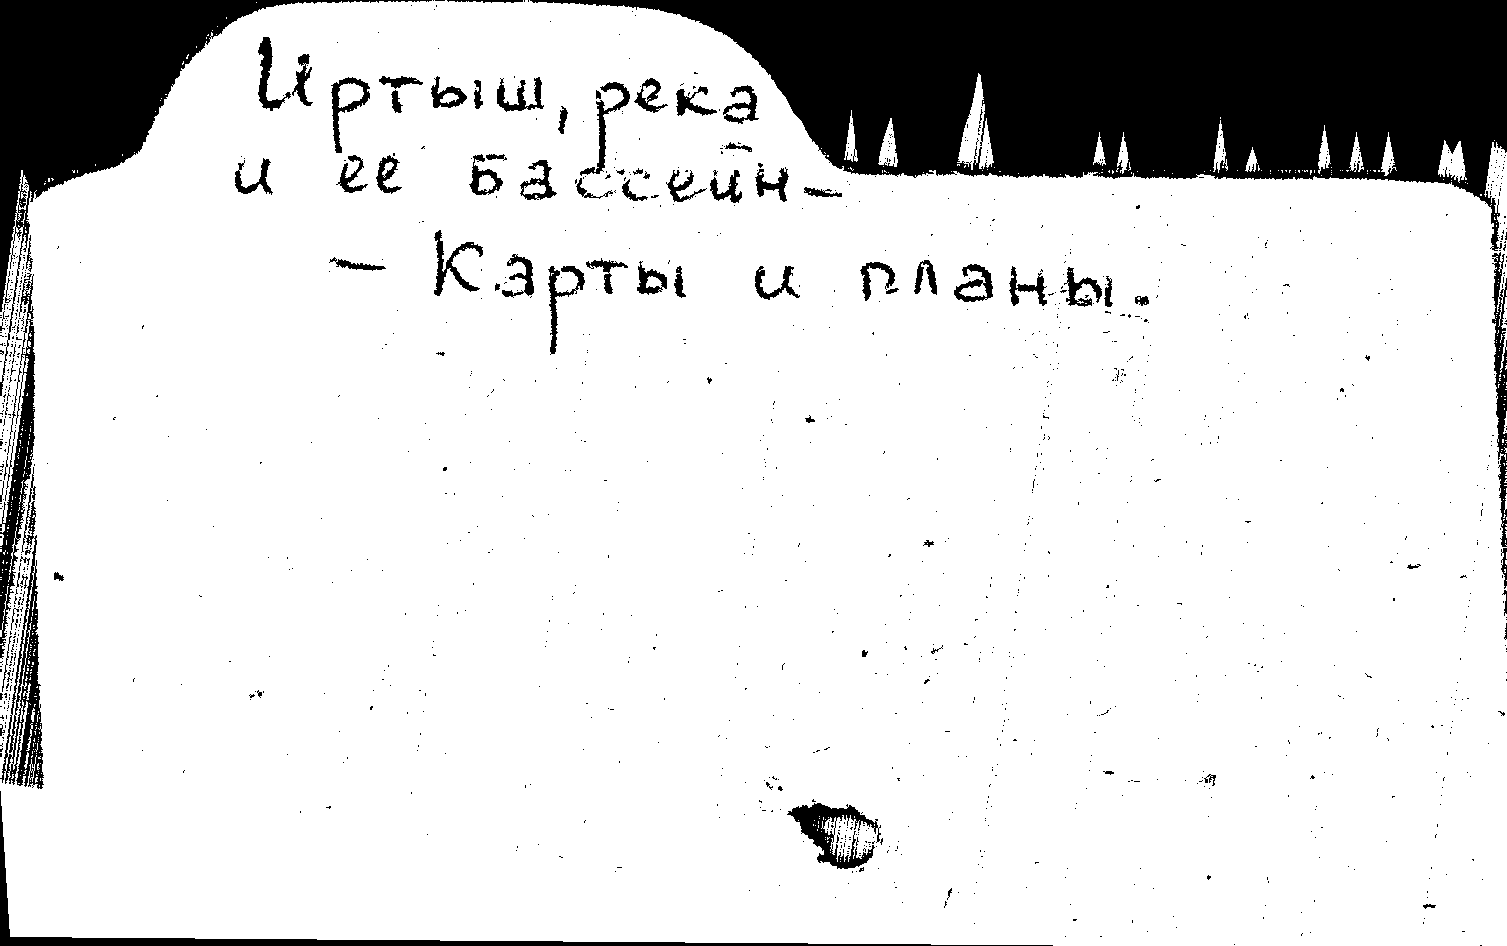 Иртыш, река
и ее бассейн –
– Карты и планы.